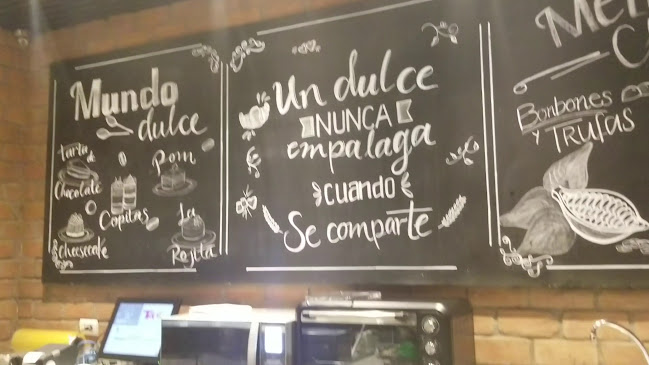 Mundo
dulce
Tarta
de
Chocolate
Pom
Copitas
Cheesecake
La
Rojita
Un dulce
NUNCA
empalaga
CUANDO
Se comparte
Bonbones
y TRUFAS